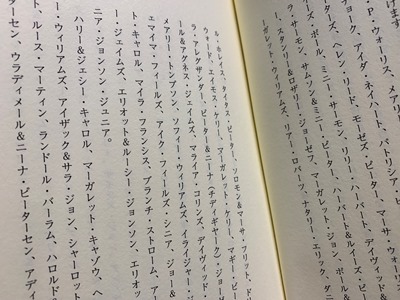 ・ウォーリス、メアリ
アイダ・ネイハート、パトリシア・ピ
ラ・サモン、サムソン&ミニー・ピーター、マーサ・ウ
ズ・ポール、ミニー・サーモン、リリー・ハーバート
ターズ、ヘレン・リド、モーゼズ・ピーター、ハーバート&ルイーズ・ピ
ー、スタンリー&ロザリー・ジョーゼフ、マーガレット・ジョン、ポール
ーガレット・ウィリアムズ、リアー・ロバーツ、ナタリー・エリック、ダニ
ル・ホレイス、タイタス・ピーター、ソロモン&マーサ・フリット、ドロ
ウォード、エイモス・ケリー、マーガレット・ケリー、マギー・ピー
・アレグザンダー、ピーター&ニーナ(チディギヤーク)・ジョーゼフ
ール&アグネス・ジェイムズ、マライア・コリンズ、デイヴィッド・
メアリー・トンプソン、ソフィー・ウィリアムズ、イライジャ・ジョン
ェマイマ・フィールズ、アイク・フィールズ・シニア、ジョー&
ト・キャロル、マイラ・フランシス、ブランチ・ストローム、アー
・ジェイムズ、エリオット&ルシー・ジョンソン、エリオット
ニア・ジョンソン・ジュニア。
ハリー&ジェシー・キャロル、マーガレット・キャゾウ、ヘ
ー・ウィリアムズ、アイザック&サラ・ジョン、シャーロット
ト、ルース・マーティン、ランドール・バーラム、ハロルド
ターセン、ウラディメール&ニーナ・ピーターセン、アディ